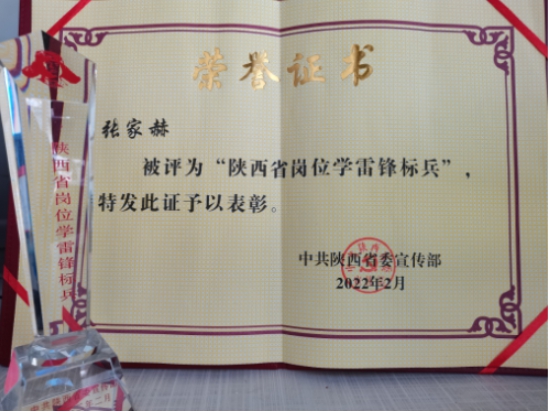 荣誉证书
张家赫
被评为“陕西省岗位学雷锋标兵”,
特发此证予以表彰。
中共陕西省委宣传部
2022年2月
陕西省岗位学雷锋标兵